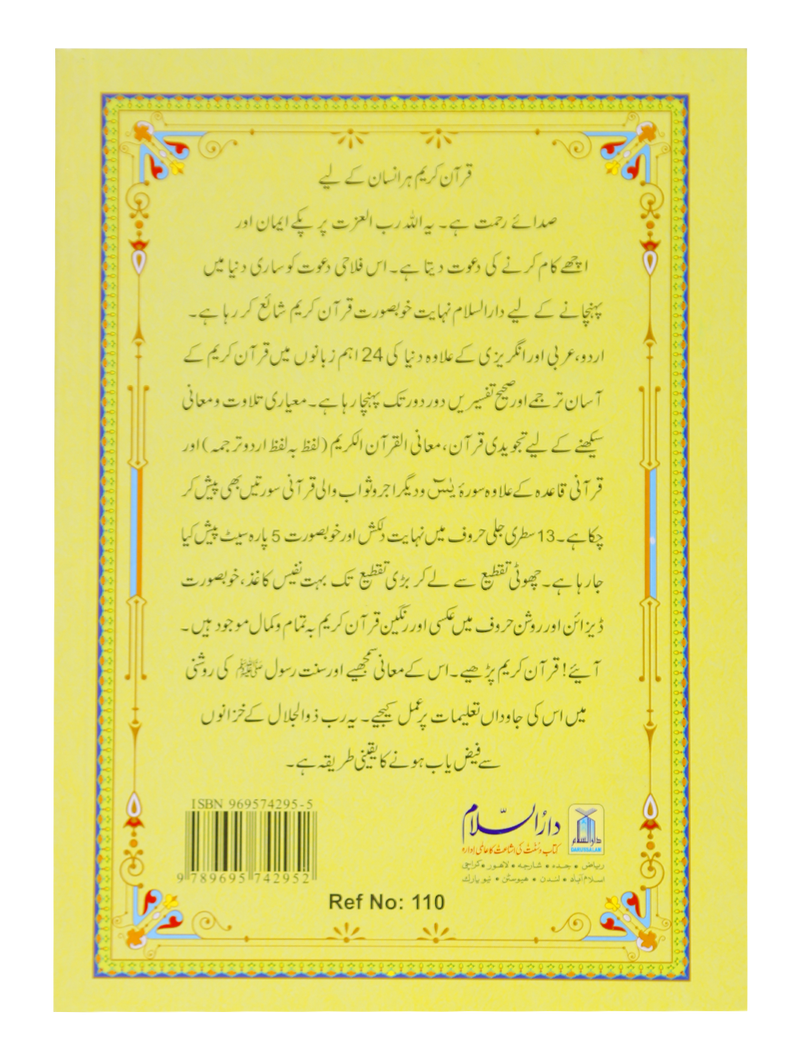 قرآن کریم ہر انسان کے لیے
صدائے رحمت ہے۔ یہ اللہ رب العزت پر پکے ایمان اور
اچھے کام کرنے کی دعوت دیتا ہے۔ اس فلاحی دعوت کو ساری دنیا میں
پہنچانے کے لیے دارالسلام نہایت خوبصورت قرآن کریم شائع کر رہا ہے۔
اردو، عربی اور انگریزی کے علاوہ دنیا کی 24 اہم زبانوں میں قرآن کریم کے
آسان ترجمے اور صحیح تفسیریں دور دور تک پہنچا رہا ہے۔ معیاری تلاوت و معانی
سیکھنے کے لیے تجویدی قرآن، معانی القرآن الکریم (لفظ بہ لفظ اردو ترجمہ) اور
قرآنی قاعدہ کے علاوہ سورۂ یٰسٓ و دیگر اجر و ثواب والی قرآنی سورتیں بھی پیش کر
چکا ہے۔ 13 سطری جلی حروف میں نہایت دلکش اور خوبصورت 5 پارہ سیٹ پیش کیا
جا رہا ہے۔ چھوٹی تقطیع سے لے کر بڑی تقطیع تک بہت نفیس کاغذ، خوبصورت
ڈیزائن اور روشن حروف میں عکسی اور رنگین قرآن کریم بہ تمام و کمال موجود ہیں۔
آیئے! قرآن کریم پڑھیے۔ اس کے معانی سمجھیے اور سنت رسول ﷺ کی روشنی
میں اس کی جاوداں تعلیمات پر عمل کیجیے۔ یہ رب ذوالجلال کے خزانوں
سے فیض یاب ہونے کا یقینی طریقہ ہے۔
ISBN 969574295-5
9 789695 742952
دارالسلام
DARUSSALAM
دارُالسّلام
کتاب و سنت کی اشاعت کا عالمی ادارہ
ریاض • جدہ • شارجہ • لاهور • کراچی
اسلام آباد • لندن • هیوسٹن • نیو یارک
Ref No: 110